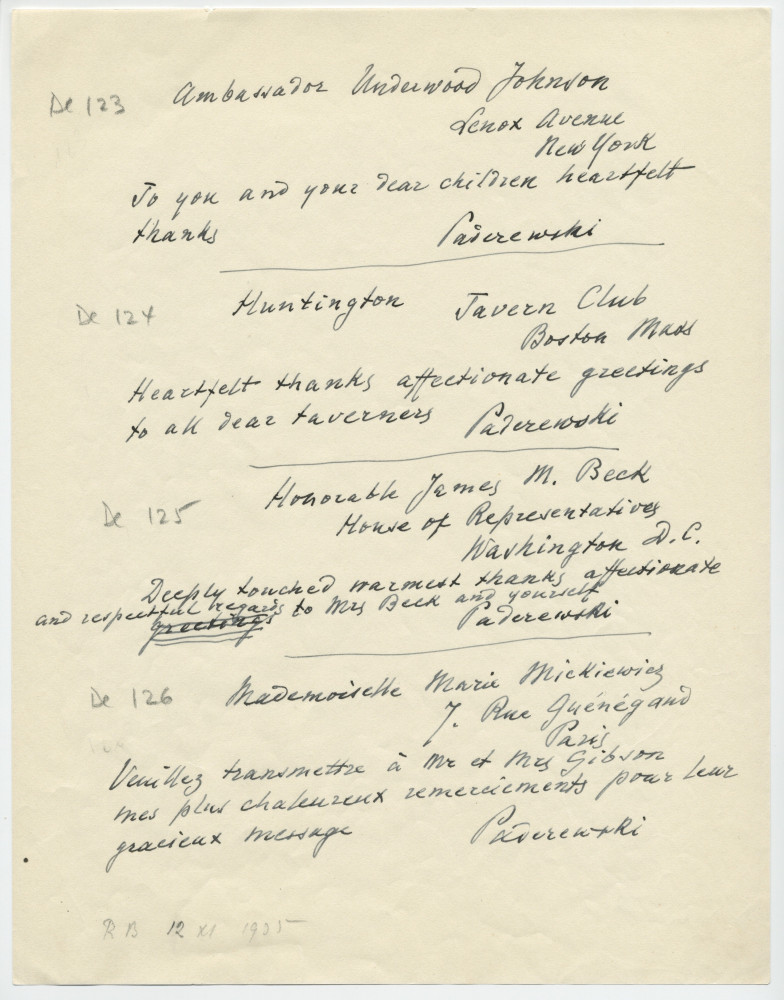 De 123 Ambassador Underwood Johnson
Lenox Avenue
New York
To you and your dear children heartfelt
thanks Paderewski
De 124 Huntington Tavern Club
Boston Mass
Heartfelt thanks affectionate greetings
to all dear taverners Paderewski
De 125 Honorable James M. Beck
House of Representatives
Washington D.C.
Deeply touched warmest thanks affectionate
and respectful regards to Mrs Beck and yourself
greetings Paderewski
De 126 Mademoiselle Marie Mickiewicz
7. Rue Guénégaud
Paris
Veuillez transmettre à Mr et Mrs Gibson
mes plus chaleureux remerciements pour leur
gracieux message Paderewski
R B 12 XI 1935